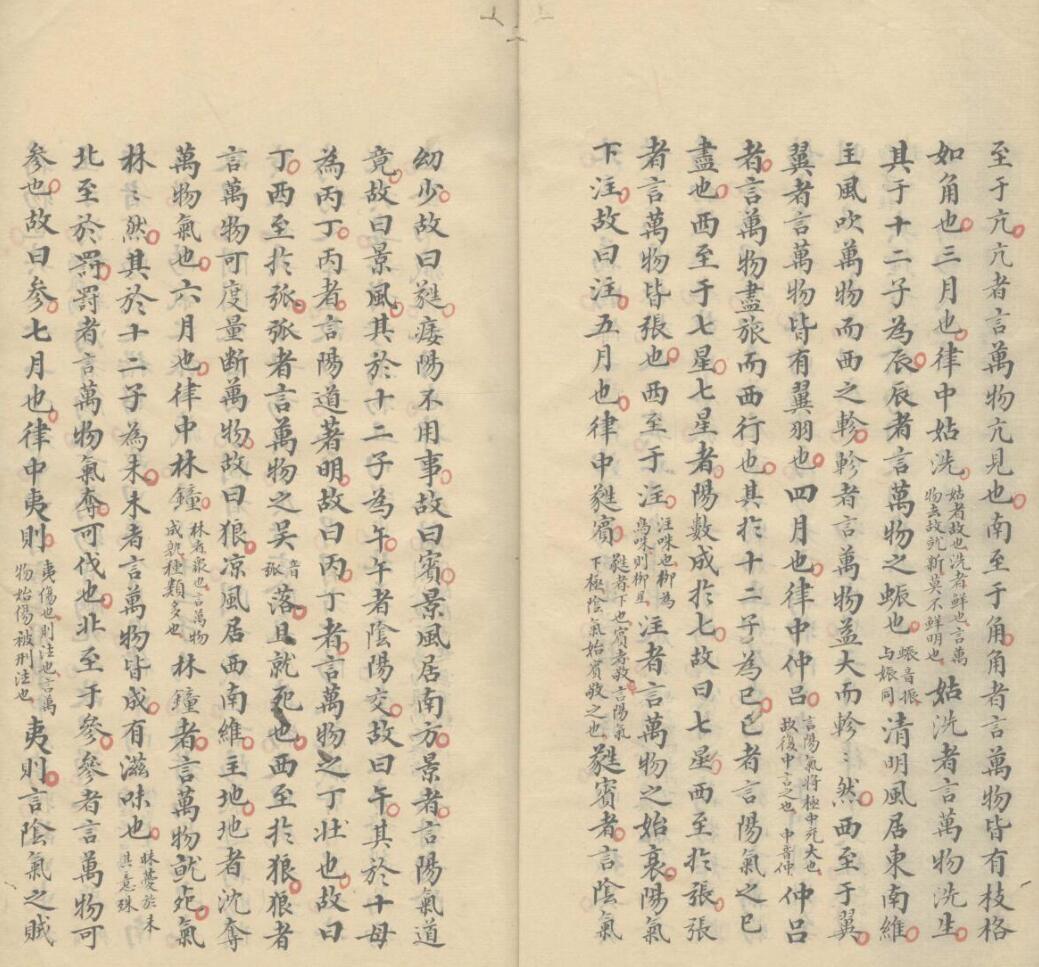 至于亢亢者言萬物亢見也南至于角角者言萬物皆有枝格
如角也三月也律中姑洗姑者故也洗者鮮也言萬物去故就新莫不鮮明也姑洗者言萬物洗生
其于十二子為辰辰者言萬物之蜄也蜄音振與娠同清明風居東南維
主風吹萬物而西之軫軫者言萬物益大而軫〻然西至于翼
翼者言萬物皆有翼羽也四月也律中仲呂言陽氣將極中充大也故復中言之也中音仲仲呂
者言萬物盡旅而西行也其於十二子為巳巳者言陽氣之巳
盡也西至于七星七星者陽數成於七故曰七星西至於張張
者言萬物皆張也西至于注注咮也柳為鳥咮則柳星注者言萬物之始衰陽氣
下注故曰注五月也律中蕤賓蕤者下也賓者敬言陽氣下極陰氣始賓敬之也蕤賓者言陰氣
幼少故曰蕤痿陽不用事故曰賓景風居南方景者言陽氣道
竟故曰景風其於十二子為午午者陰陽交故曰午其於十母
為丙丁丙者言陽道著明故曰丙丁者言萬物之丁壯也故曰
丁西至於弧弧者言萬物之吴音弧落且就死也西至於狼狼者
言萬物可度量断萬物故曰狼涼風居西南維主地地者沈奪
萬物氣也六月也律中林鐘林者衆也言萬物成就種類多也林鐘者言萬物就死氣
林〻然其於十二子為未未者言萬物皆成有滋味也昧薆於未其意殊
北至於罰罰者言萬物氣奪可伐也北至于參參者言萬物可
参也故曰参七月也律中夷則夷傷也則法也言萬物始傷被刑法也夷則言陰氣之賊